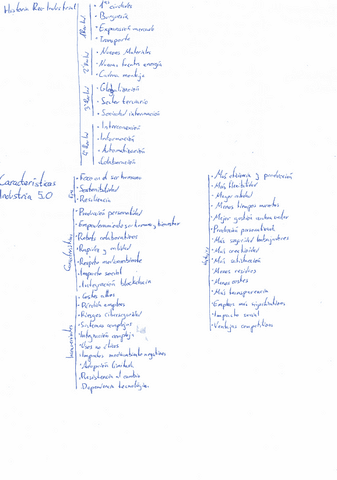 Historia Rev Industrial
1ª Rev Ind
• Burguesía
• Expansión mercado
• Transporte
2ª Rev Ind
• Nuevos Materiales
• Nuevas fuentes energía
• Cadena montaje
3ª Rev Ind
• Globalización
• Sector terciario
• Sociedad información
4ª Rev Ind
• Interconexión
• Información
• Automatización
• Colaboración
Características Industria 5.0
• Foco en el ser humano
• Sostenibilidad
• Resiliencia
Características
• Producción personalizada
• Empoderamiento ser humano y bienestar
• Robots colaborativos
• Rapidez y calidad
• Respeto medioambiente
• Impacto social
• Integración blockchain
Inconvenientes
• Costes altos
• Pérdida empleos
• Riesgos ciberseguridad
• Sistemas complejos
• Integración compleja
• Usos no éticos
• Impactos medioambiente negativos
• Adopción limitada
• Resistencia al cambio
• Dependencia tecnológica
Ventajas
• Más eficiencia y producción
• Más flexibilidad
• Mejor calidad
• Menos tiempos muertos
• Mejor gestión
• Producción personalizada
• Más seguridad trabajadores
• Más creatividad
• Más satisfacción
• Menos residuos
• Menos costes
• Más transparencia
• Empleos más significativos
• Impacto social
• Ventajas competitivas